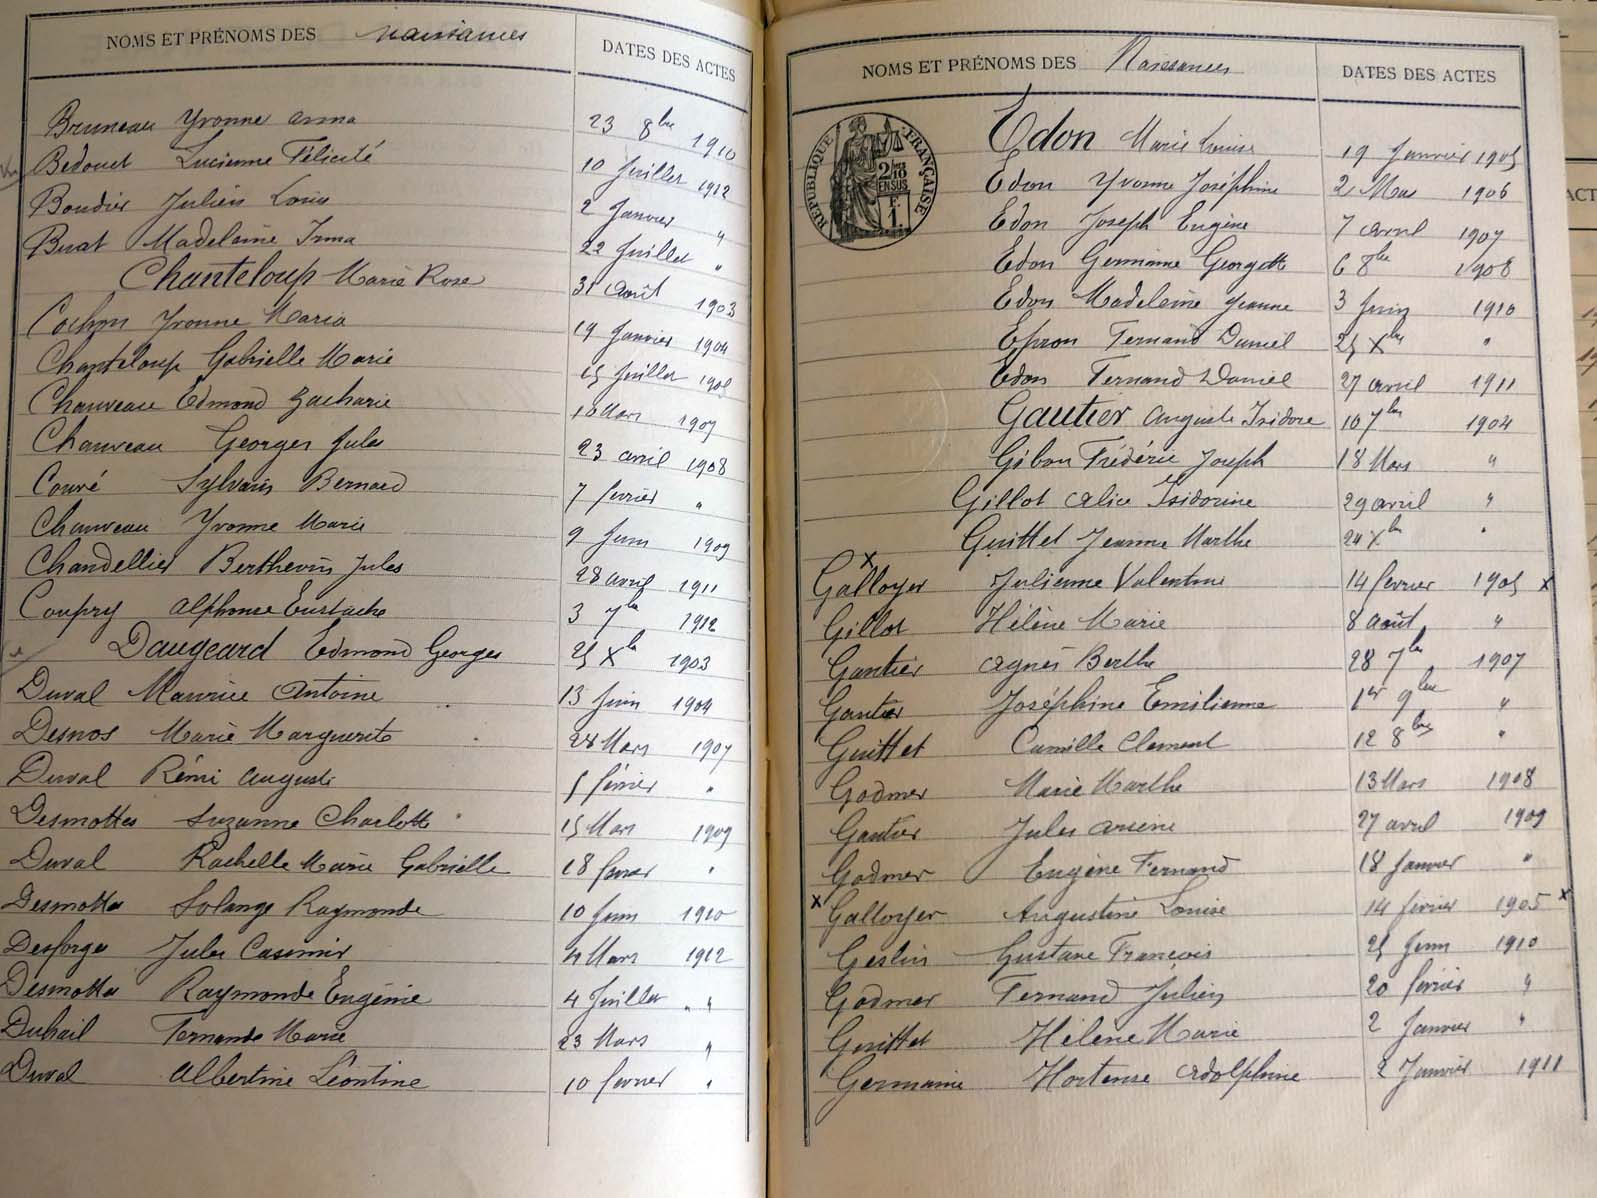 NOMS ET PRÉNOMS DES Naissances DATES DES ACTES
Bruneau Yvonne Anna 23 8bre 1910
Bedouet Lucienne Félicité 10 Juillet 1912
Boudier Julien Louis 2 Janvier "
Buat Madeleine Irma 22 Juillet "
Chanteloup Marie Rose 31 Août 1903
Cochon Yvonne Maria 19 Janvier 1904
Chanteloup Gabrielle Marie 15 Juillet 1905
Chauveau Edmond Zacharie 10 Mars 1907
Chauveau Georges Jules 23 avril 1908
Couré Sylvain Bernard 7 février "
Chauveau Yvonne Marie 9 Juin 1909
Chandellier Berthevin Jules 28 avril 1911
Coupry Alphonse Eustache 3 7bre 1912
Daugeard Edmond Georges 25 Xbre 1903
Duval Maurice Antoine 13 Juin 1904
Desnos Marie Marguerite 28 Mars 1907
Duval Rémi Auguste 5 février "
Desmottes Suzanne Charlotte 15 Mars 1909
Duval Rachelle Marie Gabrielle 18 février "
Desmottes Solange Raymonde 10 Juin 1910
Desforges Jules Casimir 4 Mars 1912
Desmottes Raymonde Eugénie 4 Juillet "
Duhail Fernande Marie 23 Mars "
Duval Albertine Léontine 10 février "
NOMS ET PRÉNOMS DES Naissances DATES DES ACTES
RÉPUBLIQUE FRANÇAISE
2/10
EN SUS
F.
1.
Edon Marie Louise 19 Janvier 1905
Edon Yvonne Joséphine 2 Mars 1906
Edon Joseph Eugène 7 avril 1907
Edon Germaine Georgette 6 8bre 1908
Edon Madeleine Jeanne 3 Juin 1910
Epron Fernand Daniel 25 Xbre "
Edon Fernand Daniel 27 avril 1911
Gautier Auguste Isidore 10 7bre 1904
Gibon Frédéric Joseph 18 Mars "
Gillot Alice Isidorine 29 avril "
Guittet Jeanne Marthe 24 Xbre "
x
Galloyer Julienne Valentine 14 février 1905 x
Gillot Hélène Marie 8 août "
Gautier Agnès Berthe 28 7bre 1907
Gautier Joséphine Emilienne 1er 9bre "
Guittet Camille Clement 12 8bre "
Godmer Marie Marthe 13 Mars 1908
Gautier Jules Arsène 27 avril 1909
Godmer Eugène Fernand 18 Janvier "
x Galloyer Augustine Louise 14 février 1905 x
Geslin Gustave François 25 Juin 1910
Godmer Fernand Julien 20 février "
Guittet Hélène Marie 2 Janvier "
Germaine Hortense Adolphine 2 Janvier 1911